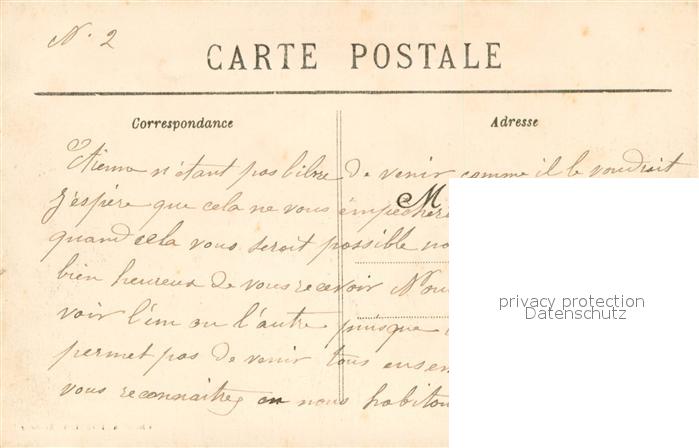 N. 2
CARTE POSTALE
Correspondance
Adresse
Etienne n'étant pas libre de venir comme il le voudrait
M
j'espère que cela ne vous empêchera
quand cela vous serait possible
bien heureux de vous recevoir Nous
voir l'un ou l'autre puisque
permet pas de venir tous ensem
vous reconnaitrez où nous habitons
privacy protection
Datenschutz